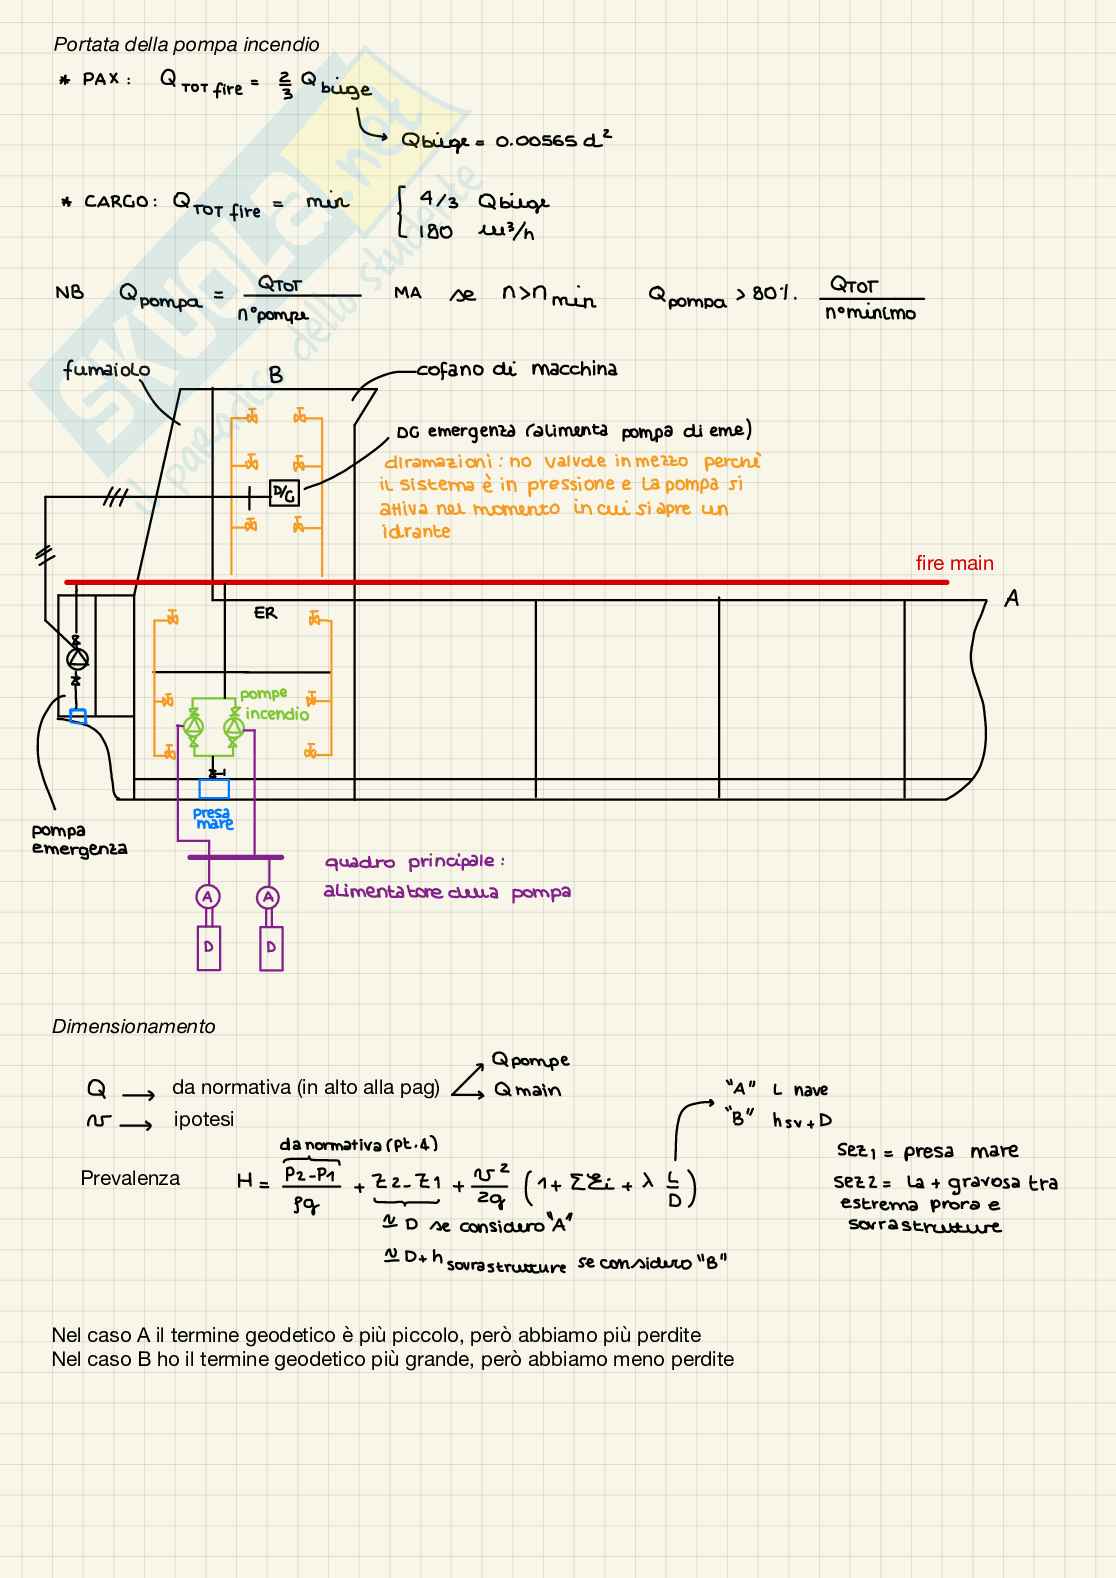 Portata della pompa incendio
* PAX: Q TOT fire = 2/3 Q bilge
Qbilge = 0.00565 d²
* CARGO: Q TOT fire = min { 4/3 Qbilge
180 m³/h
NB Qpompa = QTOT / n°pompe MA se n>n min Qpompa > 80%. QTOT / n°minimo
fumaiolo
B
cofano di macchina
DG emergenza (alimenta pompa di eme)
diramazioni: no valvole in mezzo perché
il sistema è in pressione e la pompa si
attiva nel momento in cui si apre un
idrante
D/G
fire main
ER
A
pompe
incendio
presa
mare
pompa
emergenza
quadro principale:
alimentatore della pompa
A A
D D
Dimensionamento
Qpompe
Q → da normativa (in alto alla pag) Qmain
v → ipotesi
"A" L nave
"B" hsv+D
da normativa (pt.4)
Prevalenza H = p2-p1 / ρg + z2-z1 + v²/2g (1+ Σξi + λ L/D)
≃ D se considero "A"
≃ D+h sovrastrutture se considero "B"
sez1 = presa mare
sez2 = la + gravosa tra
estrema prora e
sovrastrutture
Nel caso A il termine geodetico è più piccolo, però abbiamo più perdite
Nel caso B ho il termine geodetico più grande, però abbiamo meno perdite
SKUOLA.net
il paradiso dello studente